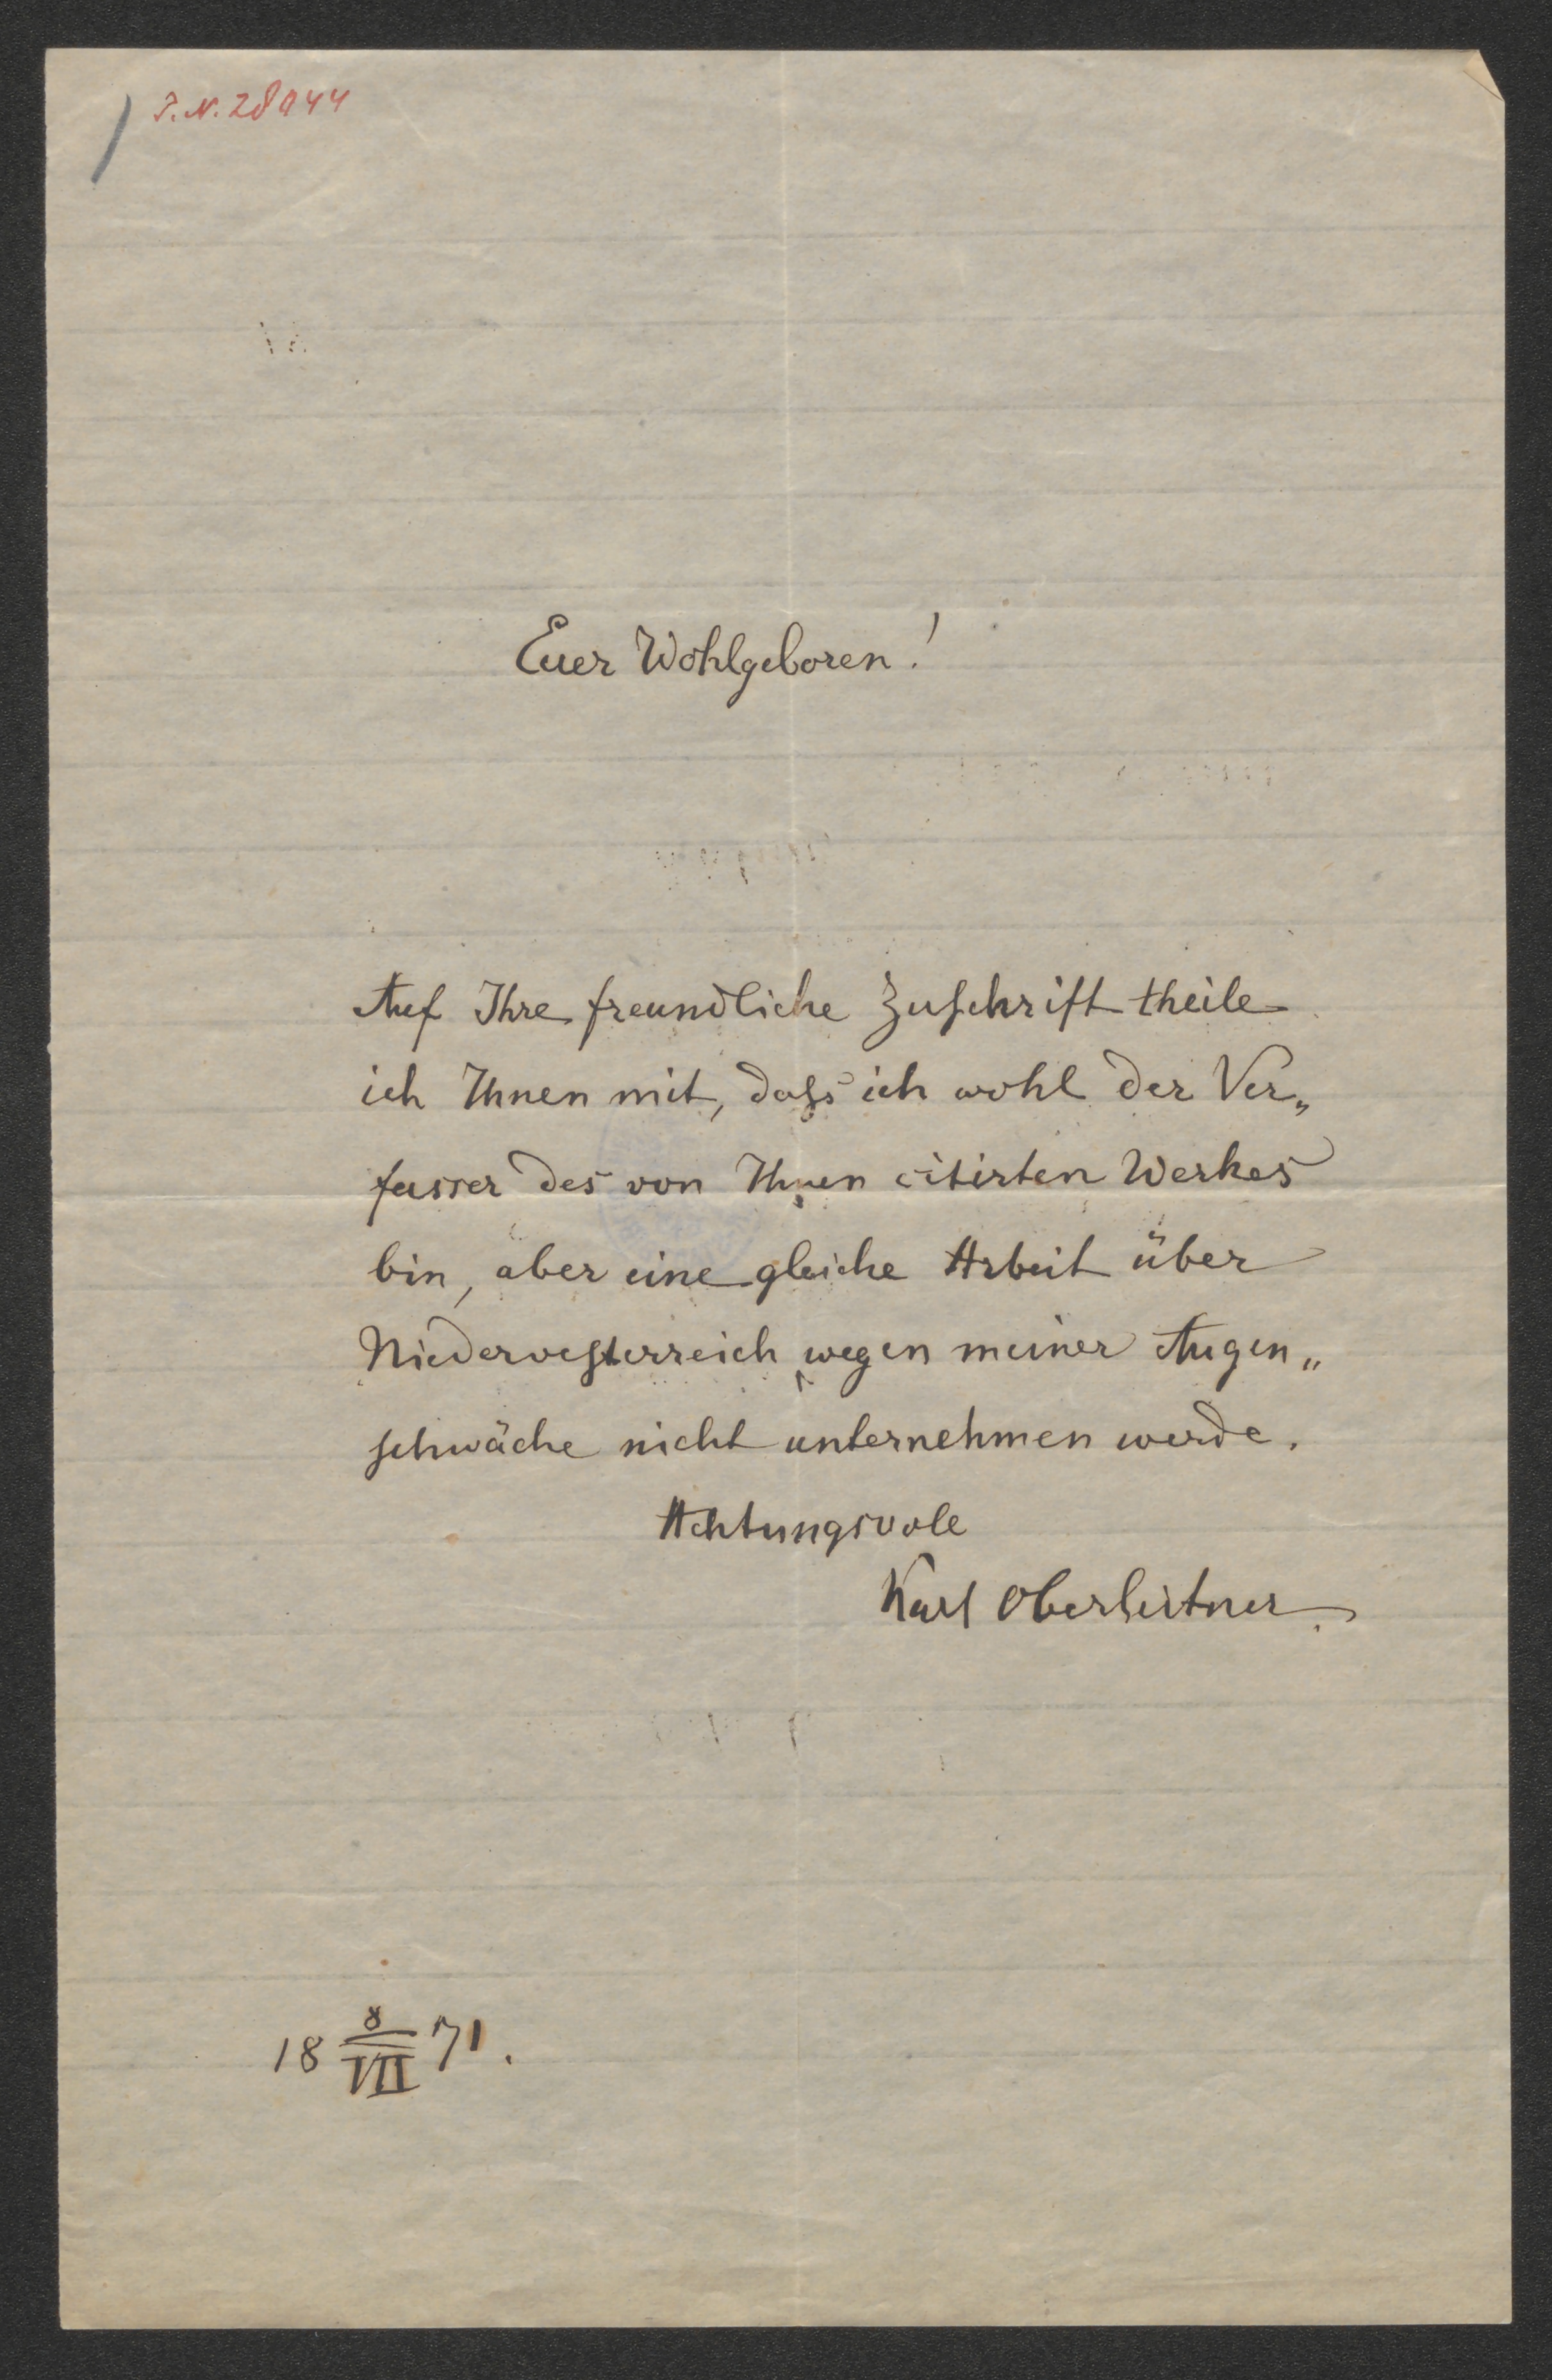 I.N. 28944
Euer Wohlgeboren!
Auf Ihre freundliche Zuschrift theile
ich Ihnen mit, dass ich wohl der Ver„
fasser des von Ihnen citirten Werkes
bin, aber eine gleiche Arbeit über
Niederoesterreich wegen meiner Augen„
schwäche nicht unternehmen werde.
Achtungsvole
Karl Oberleitner.
18 8/VII 71.